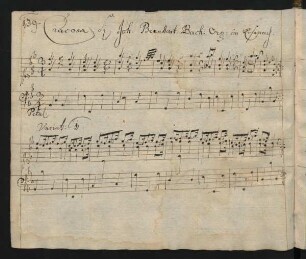 139. Ciacona di Joh. Bernhart. Bach. Org: in Eisenach
Pedal
Variat: